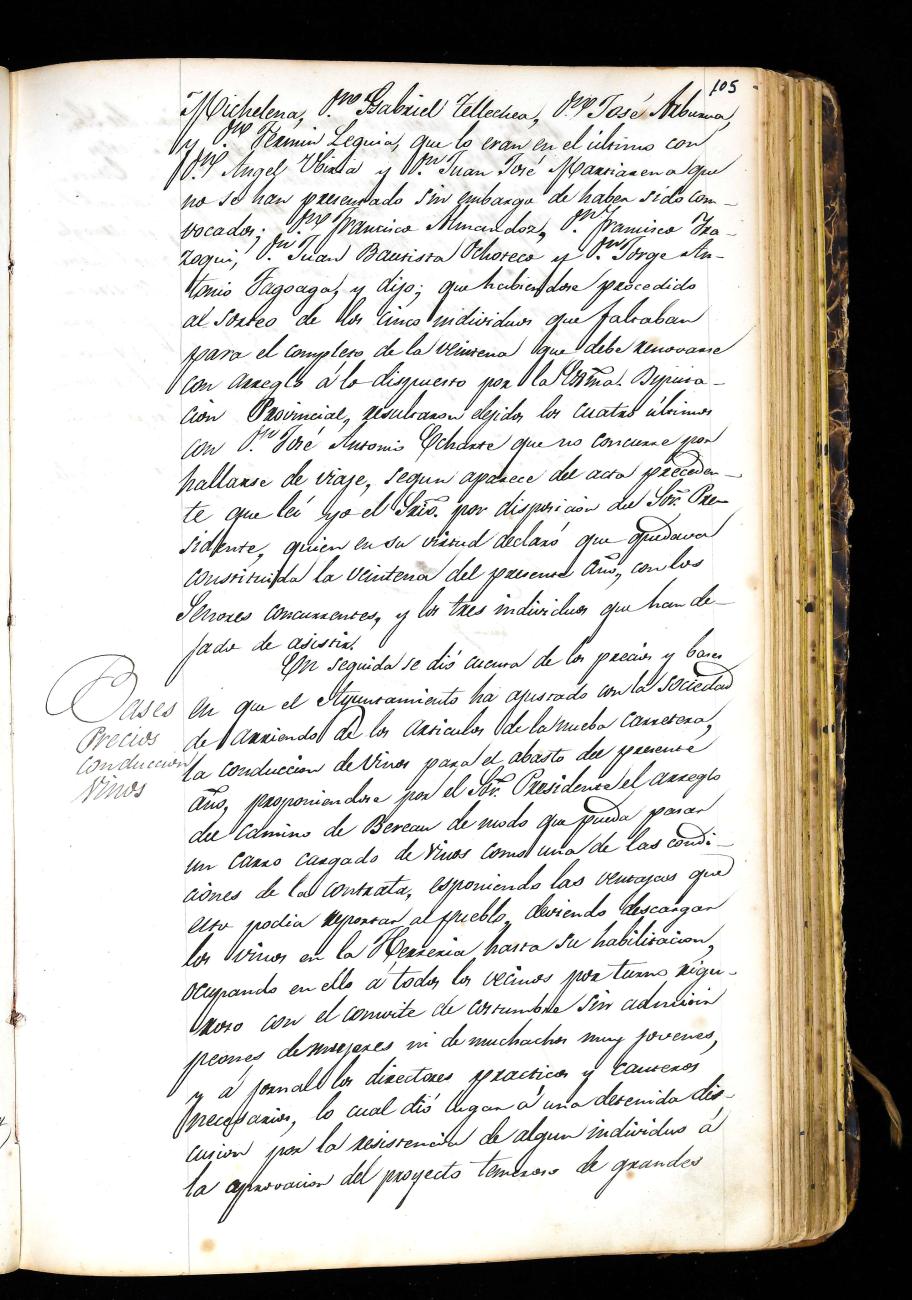 105
Michelena, Dn. Gabriel Tellechea, Dn. José Arburua,
y Dn. Fermin Leguia, que lo eran en el último con
Dn. Angel y Dn. Juan José Marriarena que
no se han presentado sin embargo de haber sido con-
vocados; Dn. Francisco Almandoz, Dn. Francisco Ira-
zoqui, Dn. Juan Bautista Ochoteco y Dn. Jorge An-
tonio Fagoaga, y dijo; que habiendose procedido
al sorteo de los cinco individuos que faltaban
para el completo de la veintena que debe renovarse
con arreglo á lo dispuesto por la Excma. Diputa-
cion Provincial, resultaron elejidos los cuatro últimos
con Dn. José Antonio Echarte que no concurre por
hallarse de viaje, segun aparece del acta preceden-
te que leí yo el Srio. por disposicion del Sor. Pre-
sidente, quien en su virtud declaró que quedava
constituida la veintena del presente año, con los
Señores concurrentes, y los tres individuos que han de-
jado de asistir.
En seguida se dió cuenta de los precios y bases
Bases
Precios
conduccion
Vinos
en que el Ayuntamiento ha ajustado con la sociedad
de arriendo de los articulos de la nueba carretera,
la conduccion de Vinos para el abasto del presente
año, proponiendose por el Sor. Presidente el arreglo
del camino de Bereau de modo que pueda pasar
un carro cargado de vinos como una de las condi-
ciones de la contrata, esponiendo las ventajas que
esto podia reportar al pueblo, deviendo descargar
los vinos en la Herreria hasta su habilitacion,
ocupando en ello á todos los vecinos por turno rigu-
roso con el convite de costumbre sin admitir
peones de mujeres ni de muchachos muy jovenes,
y á jornal los directores practicos y canteros
necesarios, lo cual dió lugar á una detenida dis-
cusion por la resistencia de algun individuo á
la aprovacion del proyecto temeroso de grandes